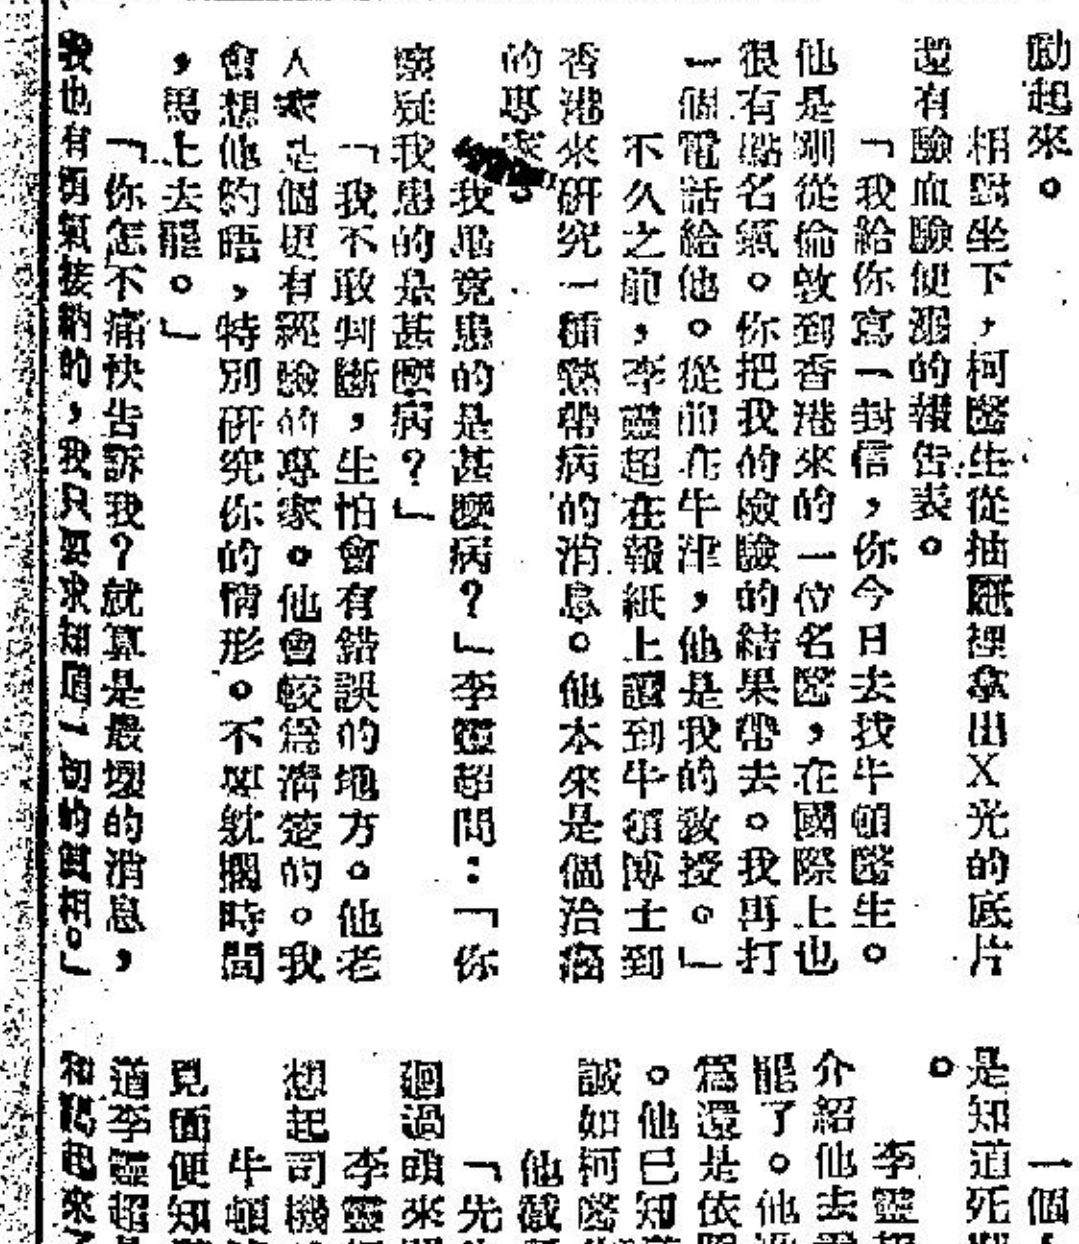 勵起來。
相對坐下，柯醫生從抽屜裡拿出X光的底片
還有驗血驗便溺的報告表。
「我給你寫一封信，你今日去找牛頓醫生。
他是剛從倫敦到香港來的一位名醫，在國際上也
很有點名氣。你把我的檢驗的結果帶去。我再打
一個電話給他。從前在牛津，他是我的教授。」
不久之前，李靈超在報紙上讀到牛頓博士到
香港來研究一種熱帶病的消息。他本來是個治癌
的專家。
「我患的是甚麼病？」李靈超問：「你
疑我患的是甚麼病？」
「我不敢判斷，生怕會有錯誤的地方。他老
人家是個更有經驗的專家。他會較為清楚的。我
會想他約晤，特別研究你的情形。不要躭擱時間
，馬上去罷。」
「你怎不痛快告訴我？就算是最壞的消息，
我也有勇氣接納的，我只要求知道一切的真相。」
一個
是知道死
。
李靈超
介紹他去
罷了。他
為還是依
。他已知
誠如柯醫
他
「先
迴過頭來
李靈
想起司機
牛頓
見面便知
道李靈超
和起來